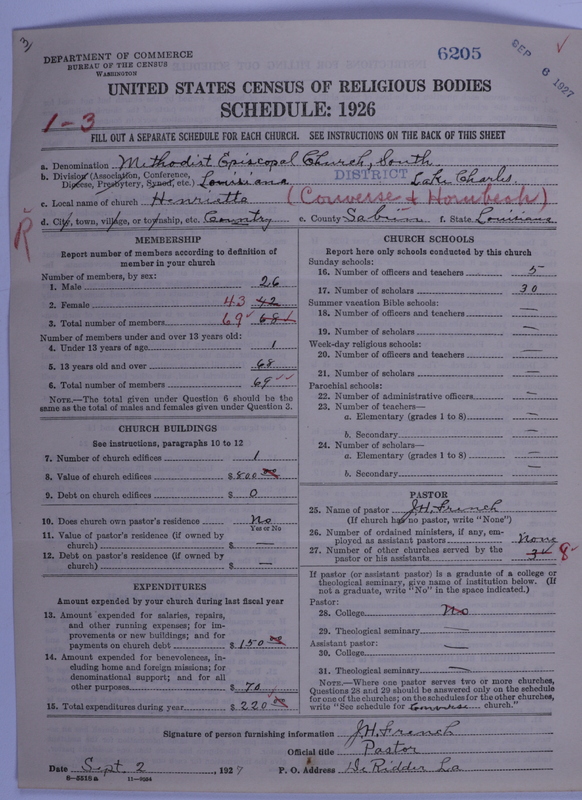 3)
DEPARTMENT OF COMMERCE
BUREAU OF THE CENSUS
WASHINGTON
6205
SEP 6 1927
UNITED STATES CENSUS OF RELIGIOUS BODIES
SCHEDULE: 1926
1-3
FILL OUT A SEPARATE SCHEDULE FOR EACH CHURCH. SEE INSTRUCTIONS ON THE BACK OF THIS SHEET
a. Denomination Methodist Episcopal Church, South
b. Division (Association, Conference, Diocese, Presbytery, Synod, etc.) Louisiana DISTRICT Lake Charles
c. Local name of church Henrietta (Converse & Hornbeck)
d. City, town, village, or township, etc. Country e. County Sabine f. State Louisiana
R
MEMBERSHIP
Report number of members according to definition of
member in your church
Number of members, by sex:
1. Male 26
2. Female 43 42
3. Total number of members 69 68
Number of members under and over 13 years old:
4. Under 13 years of age 1
5. 13 years old and over 68
6. Total number of members 69
NOTE.—The total given under Question 6 should be
the same as the total of males and females given under Question 3.
CHURCH BUILDINGS
See instructions, paragraphs 10 to 12
7. Number of church edifices 1
8. Value of church edifices $ 800 00
9. Debt on church edifices $ 0
10. Does church own pastor's residence No
Yes or No
11. Value of pastor's residence (if owned by
church) $ —
12. Debt on pastor's residence (if owned by
church) $ —
EXPENDITURES
Amount expended by your church during last fiscal year
13. Amount expended for salaries, repairs,
and other running expenses; for im-
provements or new buildings; and for
payments on church debt $ 150 00
14. Amount expended for benevolences, in-
cluding home and foreign missions; for
denominational support; and for all
other purposes $ 70
15. Total expenditures during year $ 220 00
CHURCH SCHOOLS
Report here only schools conducted by this church
Sunday schools:
16. Number of officers and teachers 5
17. Number of scholars 30
Summer vacation Bible schools:
18. Number of officers and teachers —
19. Number of scholars —
Week-day religious schools:
20. Number of officers and teachers —
21. Number of scholars —
Parochial schools:
22. Number of administrative officers —
23. Number of teachers—
a. Elementary (grades 1 to 8) —
b. Secondary —
24. Number of scholars—
a. Elementary (grades 1 to 8) —
b. Secondary —
PASTOR
25. Name of pastor J.H. French
(If church has no pastor, write "None")
26. Number of ordained ministers, if any, em-
ployed as assistant pastors None
27. Number of other churches served by the
pastor or his assistants 8
If pastor (or assistant pastor) is a graduate of a college or
theological seminary, give name of institution below. (If
not a graduate, write "No" in the space indicated.)
Pastor:
28. College No
29. Theological seminary —
Assistant pastor:
30. College —
31. Theological seminary —
NOTE.—Where one pastor serves two or more churches,
Questions 28 and 29 should be answered only on the schedule
for one of the churches; on the schedules for the other churches,
write "See schedule for Converse church."
Signature of person furnishing information J.H. French
Official title Pastor
Date Sept. 2, 1927 P. O. Address De Ridder La
6-5518a 11-9264